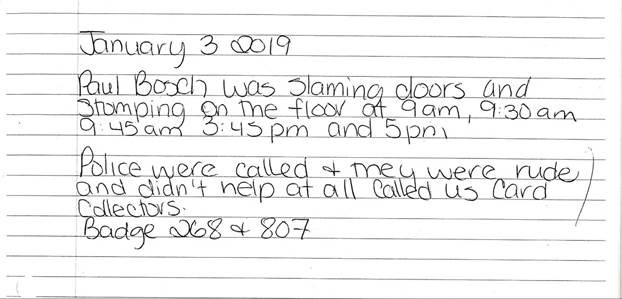 January 3 2019
Paul Bosch was slaming doors and
stomping on the floor at 9am, 9:30am
9:45am 3:45pm and 5pm
Police were called & they were rude
and didn't help at all Called us Card
Collectors.
Badge 268 & 807